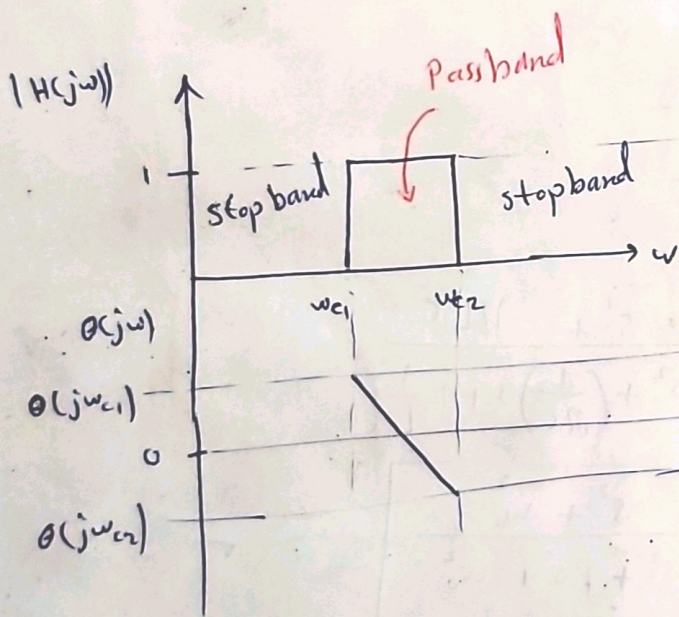 Passband
|H(jω)|
1
stopband
stopband
ω
ωc1
ωc2
θ(jω)
θ(jωc1)
0
θ(jωc2)